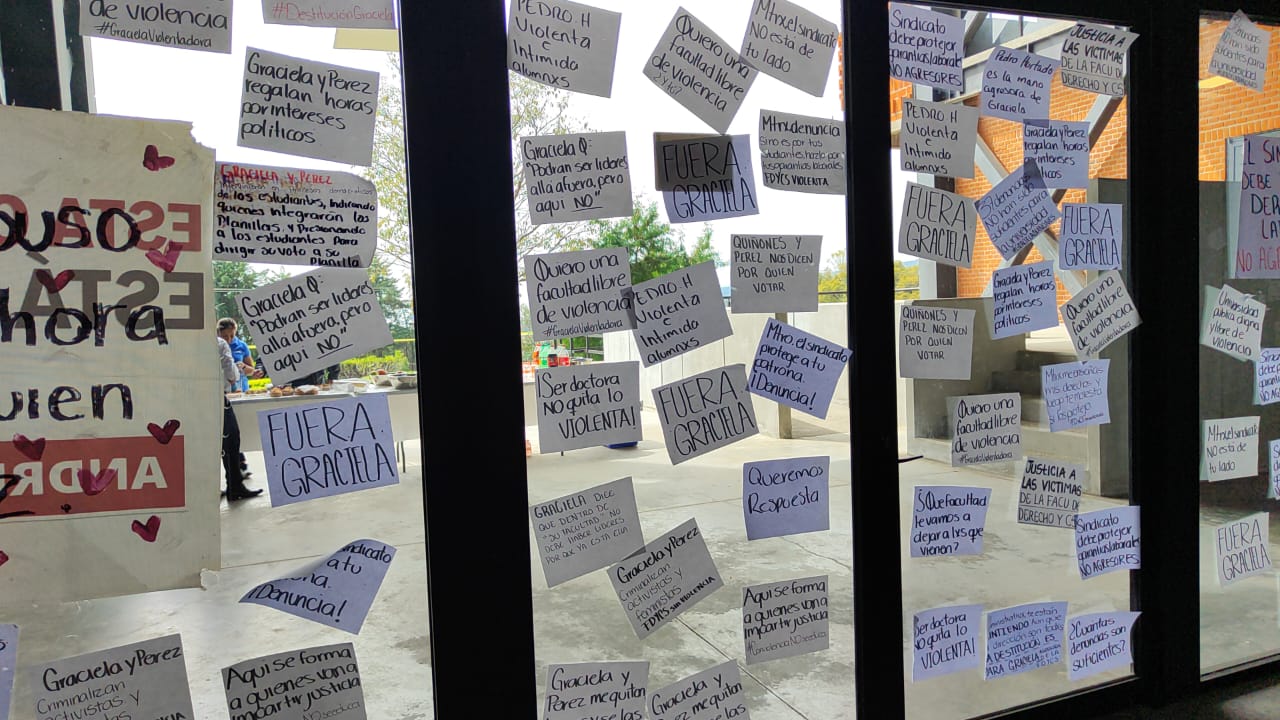 de violencia
#GracielaViolentadora
#DestituciónGraciela
Graciela y Perez
regalan horas
por intereses
políticos
GRACIELA Y PEREZ
los estudiantes, Indicando
quienes integrarán las
Planillas, y Presionando
a los estudiantes para
dirigir su voto a su
Planilla
Graciela Q:
"Podrán ser lideres
allá afuera, pero
aquí NO"
FUERA
GRACIELA
ESTA
ESTÁ
hora
uien
ANDR
Sindicato
a tu
¡Denuncia!
Graciela y Perez
Criminalizan
activistas y
Aquí se forma
a quienes van a
impartir justicia
PEDRO H
Violenta
e
Intimida
alumnxs
Quiero una
facultad libre
de violencia
Mtrx el sindicato
NO está de
tu lado
Graciela Q:
Podrán ser lideres
allá afuera, pero
aquí "NO"
FUERA
GRACIELA
Mtrx denuncia
Sino es por tus
estudiantes, hazlo por
tus garantias laborales
FDYCS VIOLENTA
Quiero una
facultad libre
de violencia
#GracielaViolentadora
PEDRO H
Violenta
e
Intimida
alumnxs
QUIÑONES Y
PEREZ NOS DICEN
POR QUIEN
VOTAR
¡Ser doctora
NO quita lo
VIOLENTA!
FUERA
GRACIELA
Mtro. el sindicato
protege a tu
patrona.
¡Denuncia!
GRACIELA DICE
QUE DENTRO DE
"SU FACULTAD" NO
DEBE HABER LIDERES
POR QUE YA ESTA ELLA
Queremos
Respuesta
Graciela y Perez
Criminalizan
activistas y
feministas
FDYCS SIN VIOLENCIA
Aquí se forma
a quienes van a
impartir justicia
#ConviolenciaNOseeduca
Graciela y
Perez me quitan
Graciela y Perez
Sindicato
debe protejer
garantias laborales
NO AGRESORES
Pedro Hurtado
es la mano
agresora de
Graciela
JUSTICIA A
LAS VÍCTIMAS
DE LA FACU DE
DERECHO Y CS
PEDRO H
Violenta
e
Intimida
alumnxs
Graciela y Perez
regalan horas
por intereses
políticos
FUERA
GRACIELA
FUERA
GRACIELA
Graciela y Perez
regalan horas
por intereses
políticos
Quiero una
facultad libre
de violencia
QUIÑONES Y
PEREZ NOS DICEN
POR QUIEN
VOTAR
Quiero una
facultad libre
de violencia
#GracielaViolentadora
JUSTICIA A
LAS VÍCTIMAS
DE LA FACU DE
DERECHO Y CS
¿Que facultad
le vamos a
dejar a lxs que
vienen?
Sindicato
debe protejer
garantias laborales
NO AGRESORES
Ser doctora
no quita lo
VIOLENTA!
¿Cuantas
denuncias son
suficientes?
Universidad
pública digna
y libre de
violencia
Mtrx el sindicato
NO está de
tu lado
FUERA
GRACIELA